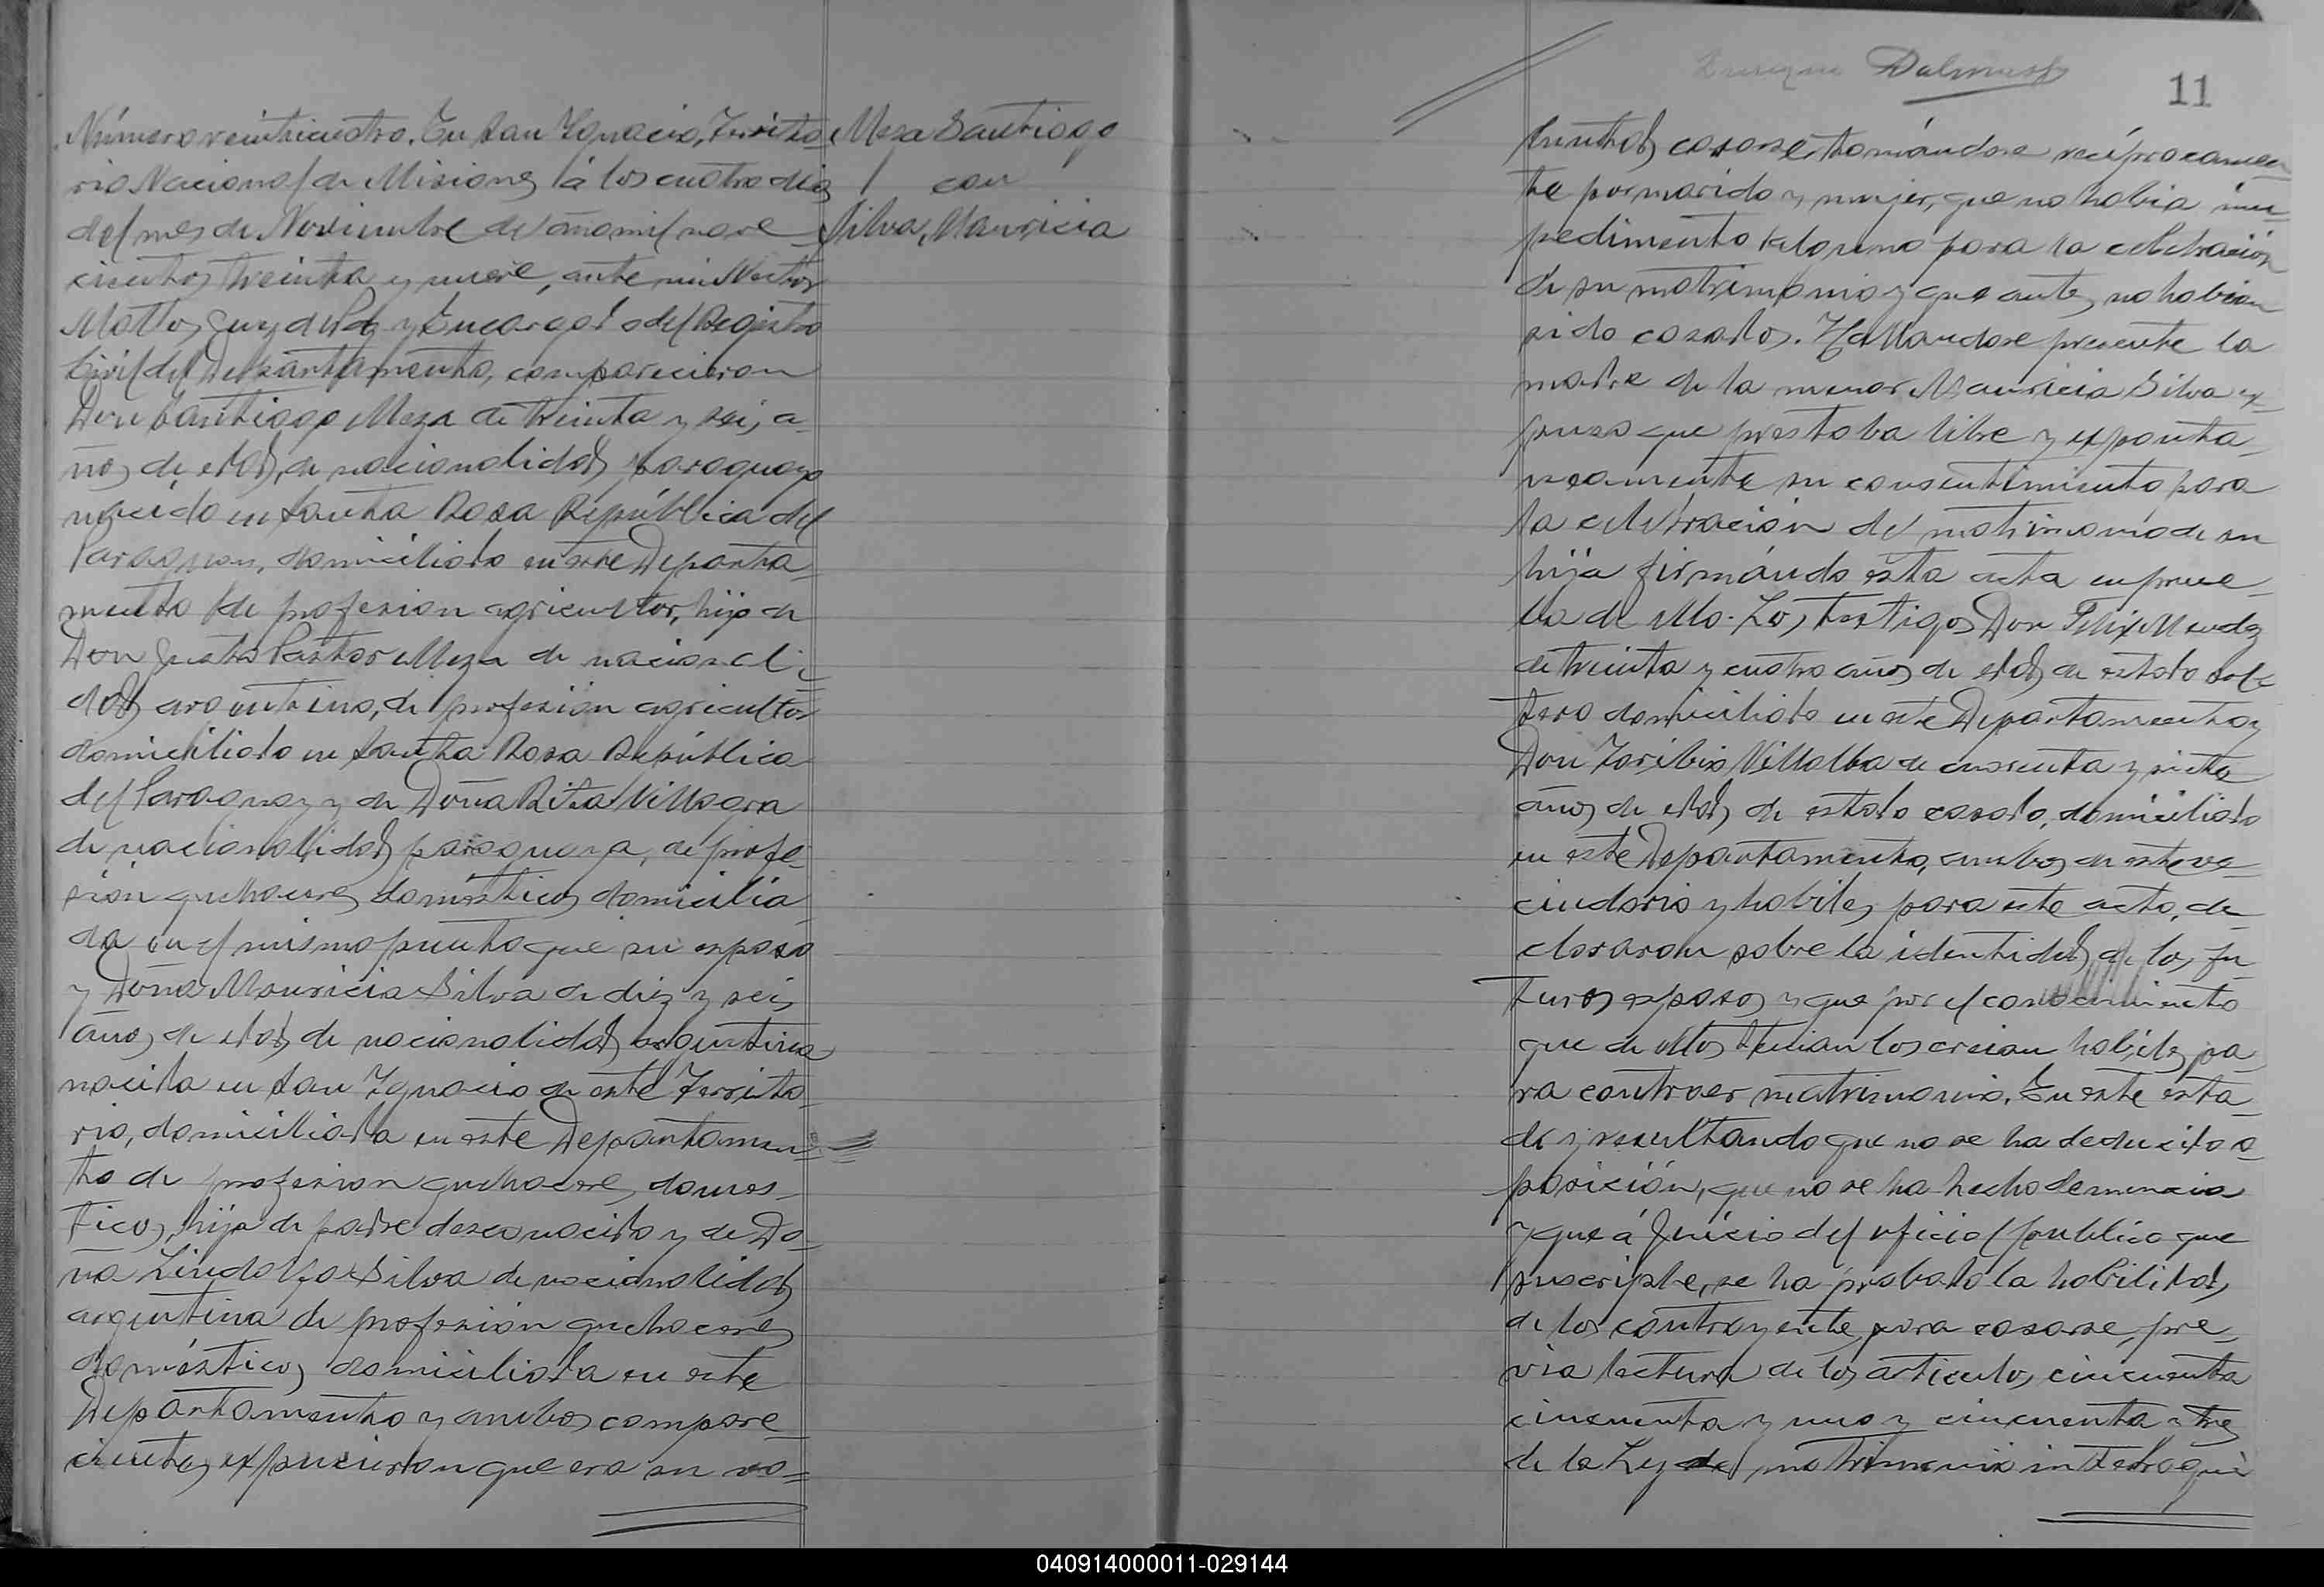 Número veinticuatro. En San Ygnacio, Territo-
rio Nacional de Misiones á los cuatro dias
del mes de Noviembre del año mil nove-
cientos treinta y nueve, ante mi Nestor
Mattos Juez de Paz y Encargado del Registro
Civil del Departamento, comparecieron
Don Santiago Meza de treinta y seis a-
ños de edad, de nacionalidad paraguaya
nacido en Santa Rosa República del
Paraguay, domiciliado en este Departa-
mento de profesion agricultor, hijo de
Don Justo Pastor Meza de nacionali-
dad argentino, de profesion agricultor
domiciliado en Santa Rosa República
del Paraguay y de Doña Rita Villagra
de nacionalidad paraguaya, de profe-
sion quehaceres domésticos domicilia-
da en el mismo punto que su esposo
y Doña Mauricia Silva de diez y seis
años de edad, de nacionalidad argentina
nacida en San Ygnacio de este Territo-
rio, domiciliada en este Departamen-
to de profesion quehaceres domes-
ticos, hija de padre desconocido y de Do-
ña Silva de nacionalidad
argentina de profesion quehaceres
domésticos domiciliada en este
Departamento y ambos compare-
cientes expusieron que era su vo-
Meza Santiago
con
Silva, Mauricia
Dalmasp
11
luntad casarse tomándose recíprocamen-
te por marido y mujer, que no habia im-
pedimento alguno para la celebración
de su matrimonio y que antes no habian
sido casados. Hallandose presente la
madre de la menor Mauricia Silva ex-
puso que prestaba libre y exponta-
neamente su consentimiento para
la celebración del matrimonio de su
hija firmándo esta acta en prue-
ba de ello. Los testigos Don Felix Mendez
de treinta y cuatro años de edad de estado sol-
tero domiciliado en este Departamento y
Don Toribio Villalba de cuarenta y siete
años de edad, de estado casado, domiciliado
en este Departamento, ambos de este ve-
cindario y habiles para este acto, de-
clararon sobre la identidad de los fu-
turos esposos y que por el conocimiento
que de ellos tenian los creian habiles pa-
ra contraer matrimonio. En este esta-
do y resultando que no se ha deducido o-
posición, que no se ha hecho denuncia
y que á Juicio del oficial publico que
suscripbe, se ha probado la habilidad
de los contrayentes para casarse, pre-
via lectura de los articulos cincuenta
cincuenta y uno y cincuenta y tres
de la Ley de matrimonio interrogué
040914000011-029144